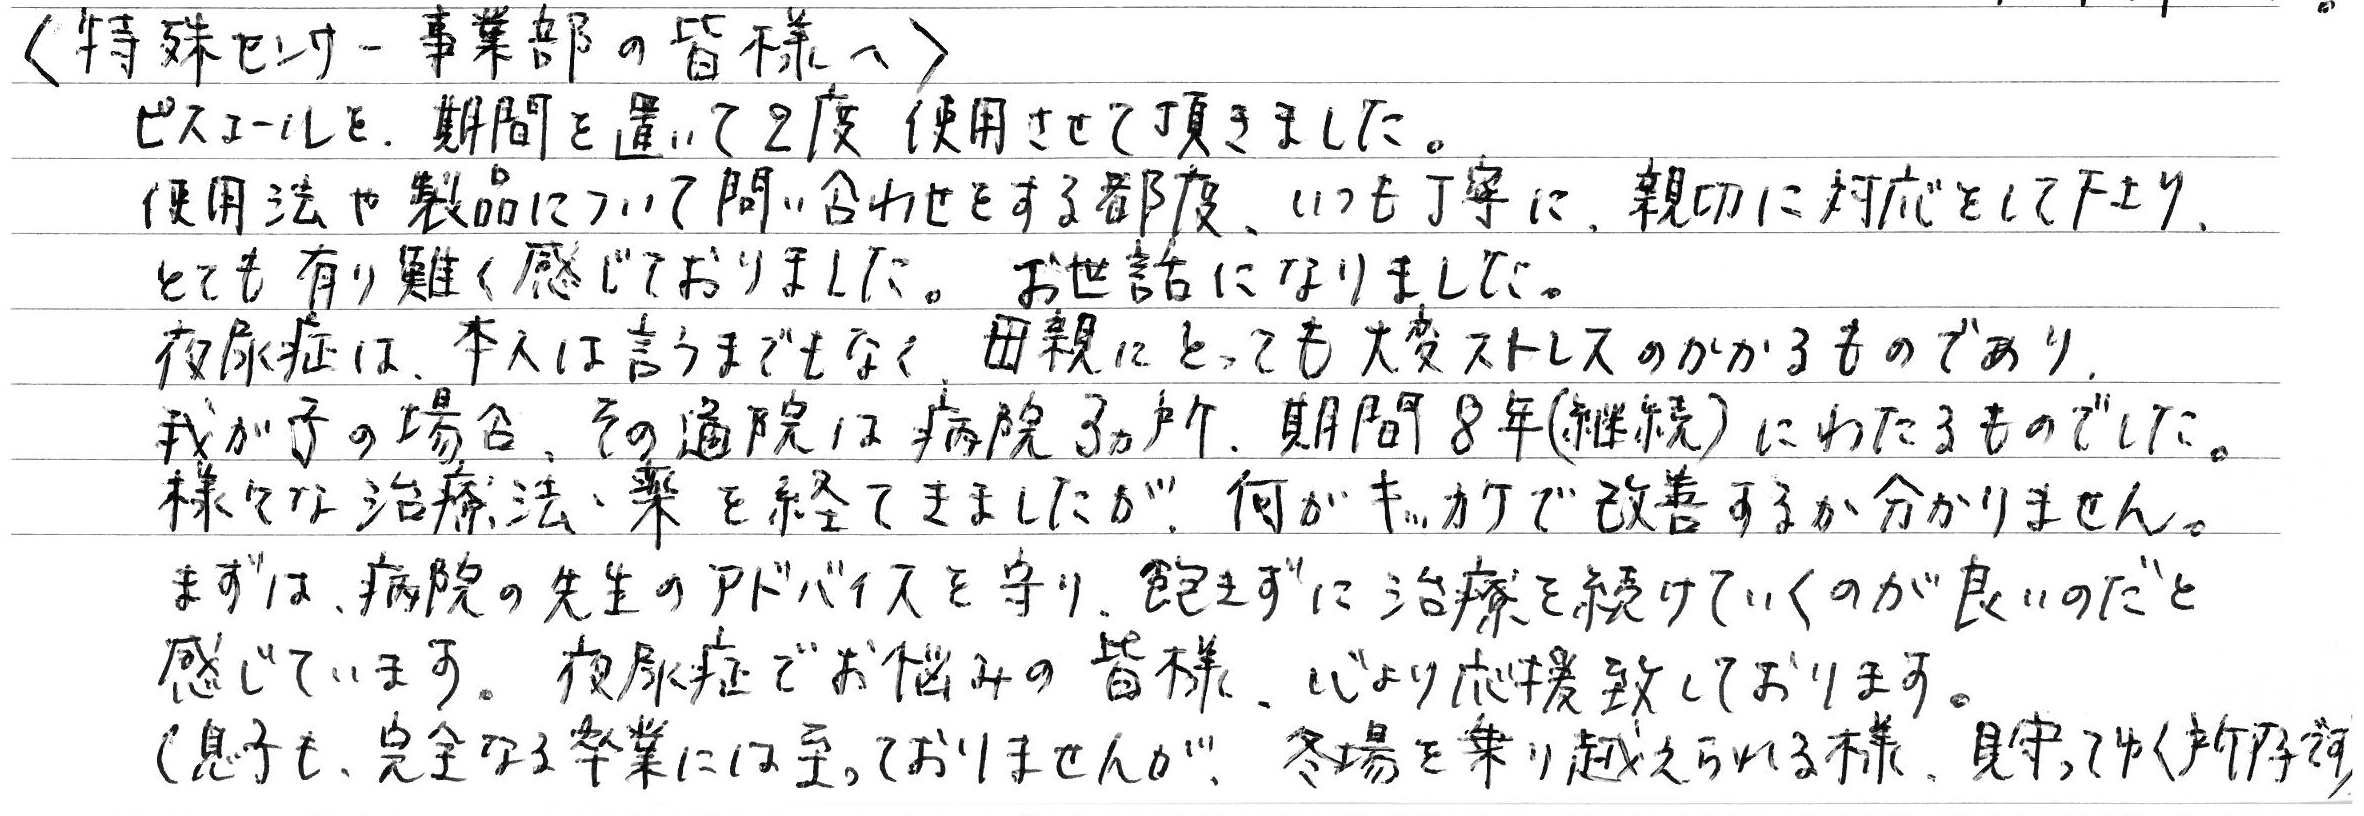 〈特殊センサー事業部の皆様へ〉
ピスコールを、期間を置いて2度 使用させて頂きました。
使用法や製品について問い合わせをする都度、いつも丁寧に、親切に対応をして下さり、
とても有り難く感じておりました。 お世話になりました。
夜尿症は、本人は言うまでもなく、母親にとっても大変ストレスのかかるものであり、
我が子の場合、その通院は病院3ヵ所、期間8年(継続)にわたるものでした。
様々な治療法・薬を経てきましたが、何がキッカケで改善するか分かりません。
まずは、病院の先生のアドバイスを守り、飽きずに治療を続けていくのが良いのだと
感じています。 夜尿症でお悩みの皆様、心より応援致しております。
(息子も、完全なる卒業には至っておりませんが、冬場を乗り越えられる様、見守ってゆく所存です)